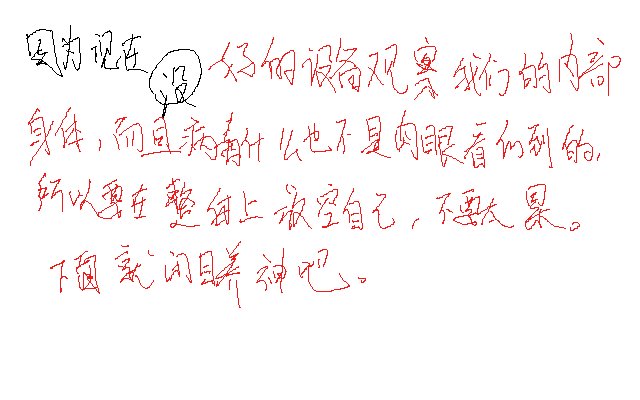 因为现在没好的设备观察我们的内部
身体，而且病毒什么也不是肉眼看们到的，
所以要在整体上放空自己，不要太累。
下面就闭目养神吧。